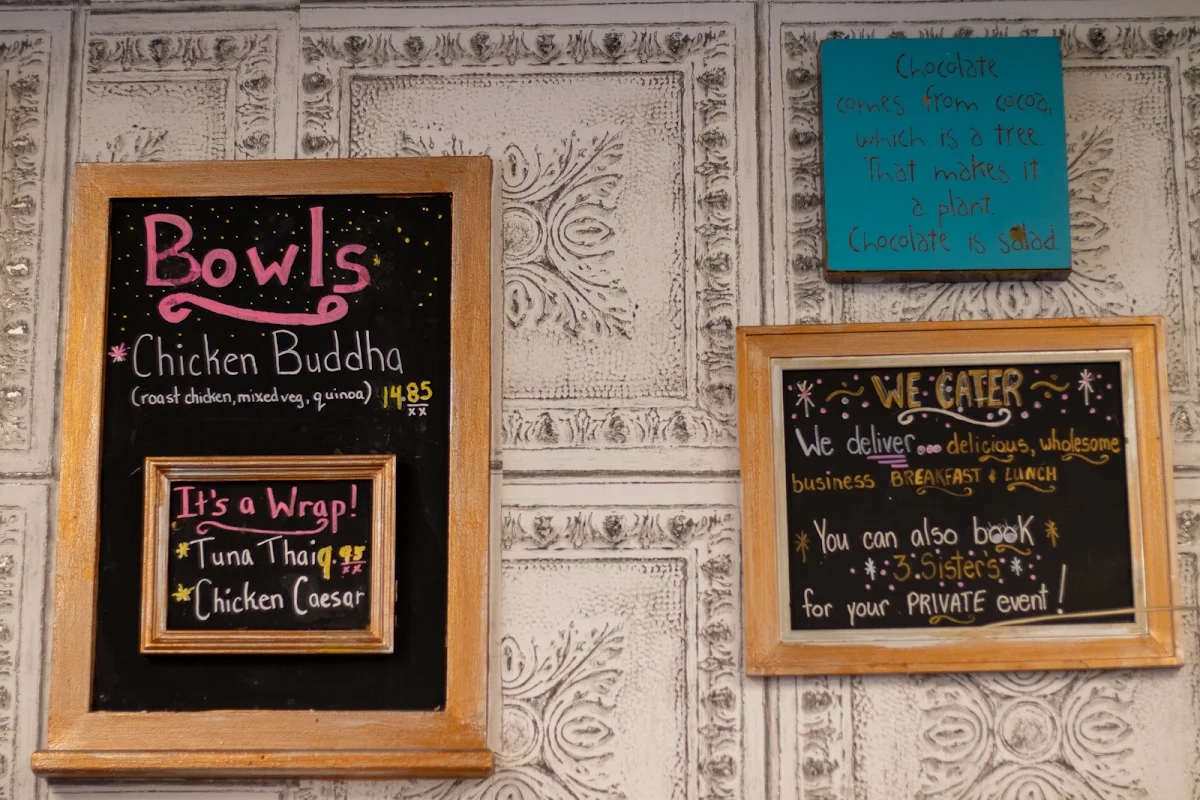 Bowls
*Chicken Buddha
(roast chicken, mixed veg, quinoa) 14.85
xx
It's a Wrap!
*Tuna Thai 9.95
xx
*Chicken Caesar
Chocolate
comes from cocoa,
which is a tree.
That makes it
a plant.
Chocolate is salad.
~WE CATER~
We deliver... delicious, wholesome
business BREAKFAST & LUNCH
You can also book
*3 Sister's*
for your PRIVATE event!